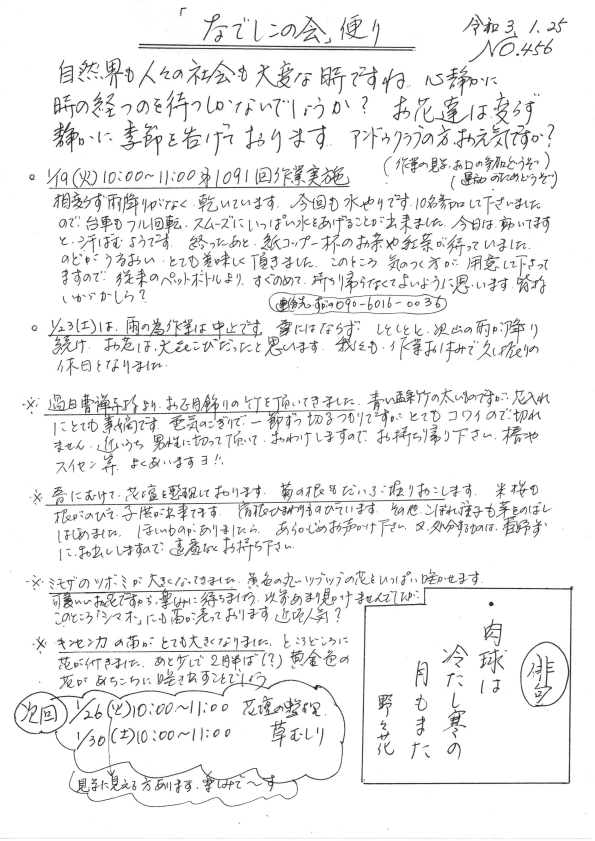 「なでしこの会」便り
令和3.1.25
NO.456
自然界も人々の社会も大変な時ですね 心静かに
時の経つのを待つしかないでしょうか? お花達は変らず
静かに季節を告げております アンドゥクラブの方、お元気ですか?
(作業の見学、お口の参加どうぞ)
(運動のためどうぞ)
○ 1/19(火)10:00〜11:00 第1091回作業実施
相変らず雨降りがなく乾いています。今回も水やりです。10名参加して下さいました
ので台車もフル回転、スムーズにいっぱい水をあげることが出来ました。今日は動いてます
と、汗ばむようです。終ったあと、紙コップ一杯のお茶や紅茶が待っていました。
のどがうるおい、とても美味しく頂きました。このところ、気のつく方が用意して下さって
ますので、従来のペットボトルより、すぐのめて、持ち帰らなくてよいように思います。皆様
いかがかしら?
○ 1/23(土)は、雨の為作業は中止です。雪にはならず、しとしとと、沢山の雨が降り
続け、お花は、大よろこびだったと思います。我々も、作業お休みで久し振りの
休日となりました。
※ 過日曹禅寺様より、お正月飾りの竹を頂いてきました。青い孟宗竹の太いものが、花入れ
にとても素敵です。電気のこぎりで、一節ずつ切るつもりですが、とてもコワイので切れ
ません。近いうち男性に切って頂いて、おわけしますので、お持ち帰り下さい。椿や
スイセン等、よくあいますヨ!!
※ 春にむけて、花壇を整理しております。菊の根もだいぶ掘りおこします。米桜も
根がのびて、子供が出来てます。宿根ひまわりものびています。その他、こぼれ種子も芽をのばし
はじめました。ほしいものがありましたら、あらかじめお声かけ下さい。又、処分するのは、
に、お出ししますので、遠慮なくお持ち下さい。
※ ミモザのツボミが大きくなってきました。黄色の丸いツブツブの花をいっぱい咲かせます。
可愛いいお花ですから、楽しみに待ちましょう。以前あまり見かけませんでしたが、
このところ「シマオ」にも苗が売っております。近頃人気?
※ キンセンカの苗がとても大きくなりました。ところどころに
花が付きました。あと少しで2月半ば(?)黄金色の
花があちこちに咲き出すことでしょう
次回
1/26(火)10:00〜11:00 花壇の整理
1/30(土)10:00〜11:00 草むしり
(見学に見える方あります。楽しみで〜す)
俳句
・肉球は
冷たし寒の
月もまた
野々花